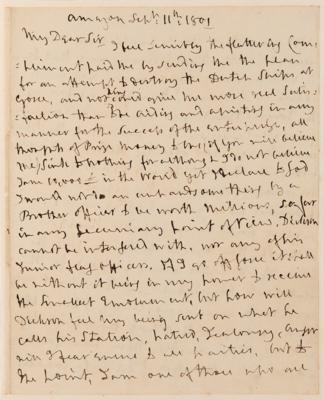 Amazon Septr. 11th 1801
My Dear Sir I feel sensibly the flattering Com
pliment paid me by sending me the plan
for an attempt to destroy the Dutch Ships at
Goree, and nothing could give me more real Satis
faction than the aiding and assisting in any
manner for the success of the enterprize, all
thought of Prize Money to me, if you will believe
me, sink to nothing for although I do not believe
I am 10,000£ in the World yet I declare to God
I would not do an unhandsome thing by a
Brother officer to be worth Millions, so far
in any pecuniary point of View, Dickson
cannot be interfered with, nor any of his
Junior flag officers, If I go off Goree it shall
be without it being in my power to receive
the smallest Emolument, but how will
Dickson feel my being sent on what he
calls his Station, hatred, Jealousy,
will I fear ensue to all parties, but to
the point, I am one of those who are